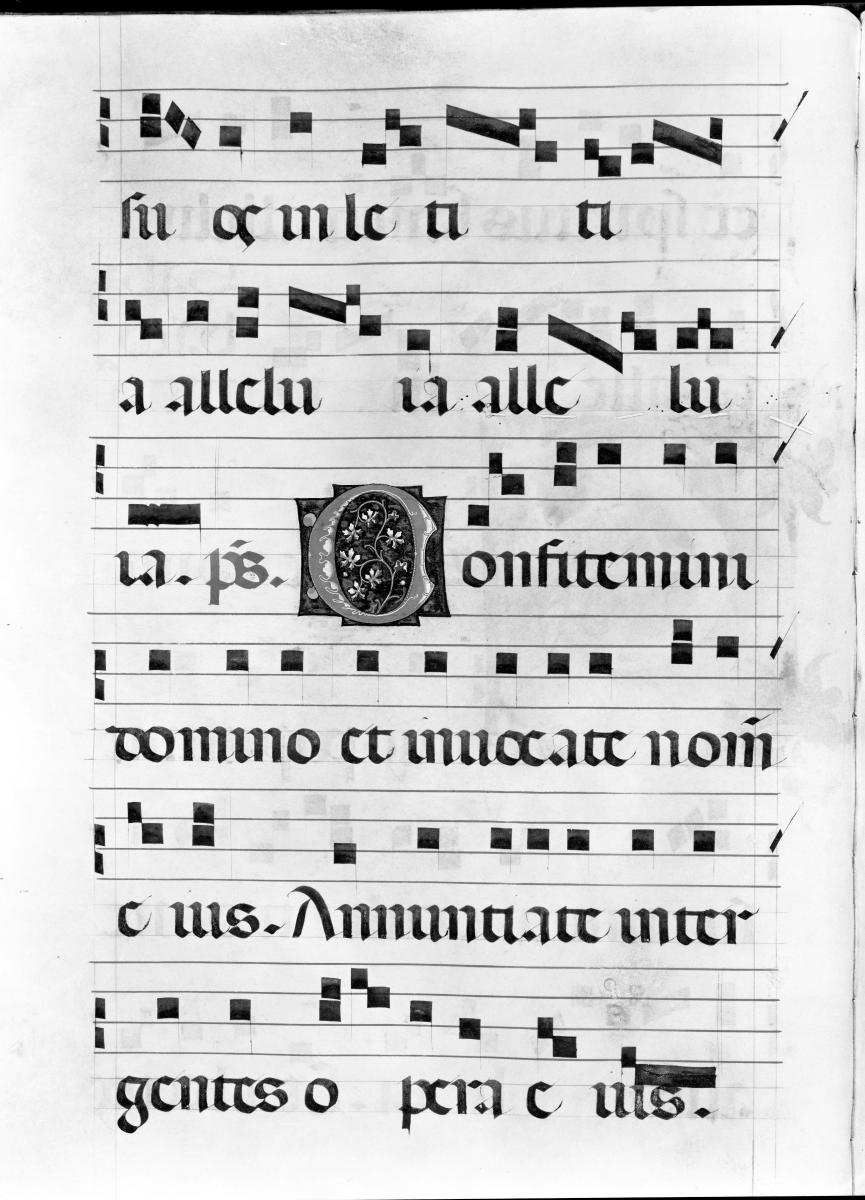 suos in le ti ti
a allelu ia alle lu
ia. ps. Confitemini
domino et inuocate nom̄
e ius. Annuntiate inter
gentes o pera e ius.